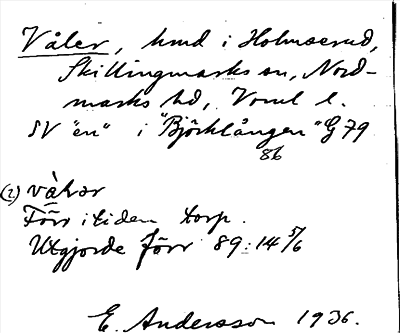 Våler, hmd i Holmserud,
Skillingmarks sn, Nord-
marks hd, Vrml l.
SV "en" i "Björklången" G 79
86
(2) vàlɘr
Förr i tiden torp.
Utgjorde förr 89:14 5/6
E. Andersson 1936.